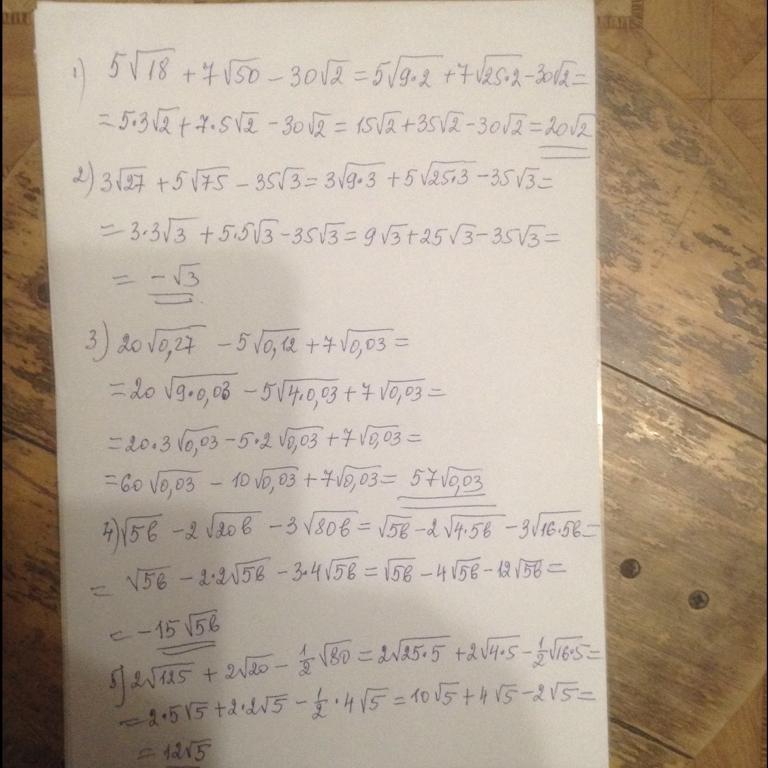 1) 5√18 + 7√50 - 30√2 = 5√9·2 + 7√25·2 - 30√2 =
= 5·3√2 + 7·5√2 - 30√2 = 15√2 + 35√2 - 30√2 = 20√2
2) 3√27 + 5√75 - 35√3 = 3√9·3 + 5√25·3 - 35√3 =
= 3·3√3 + 5·5√3 - 35√3 = 9√3 + 25√3 - 35√3 =
= -√3
3) 20√0,27 - 5√0,12 + 7√0,03 =
= 20√9·0,03 - 5√4·0,03 + 7√0,03 =
= 20·3√0,03 - 5·2√0,03 + 7√0,03 =
= 60√0,03 - 10√0,03 + 7√0,03 = 57√0,03
4) √5в - 2√20в - 3√80в = √5в - 2√4·5в - 3√16·5в =
= √5в - 2·2√5в - 3·4√5в = √5в - 4√5в - 12√5в =
= -15√5в
5) 2√125 + 2√20 - 1/2√80 = 2√25·5 + 2√4·5 - 1/2√16·5 =
= 2·5√5 + 2·2√5 - 1/2·4√5 = 10√5 + 4√5 - 2√5 =
= 12√5